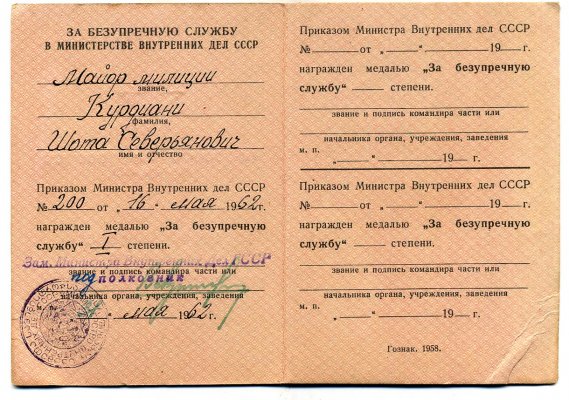 ЗА БЕЗУПРЕЧНУЮ СЛУЖБУ
В МИНИСТЕРСТВЕ ВНУТРЕННИХ ДЕЛ СССР
Майор милиции
звание,
Курдиани
фамилия,
Шота Северьянович
имя и отчество
Приказом Министра Внутренних дел СССР
№ 200 от „16“ мая 1962 г.
награжден медалью „За безупречную
службу“ I степени.
Зам. Министра Внутренних Дел СССР
звание и подпись командира части или
подполковник
начальника органа, учреждения, заведения
м. п.
мая 1962 г.
Приказом Министра Внутренних дел СССР
№ — от „ — “ — 19 — г.
награжден медалью „За безупречную
службу“ — степени.
звание и подпись командира части или
начальника органа, учреждения, заведения
м. п.
„ — “ — 19 — г.
Приказом Министра Внутренних дел СССР
№ — от „ — “ — 19 — г.
награжден медалью „За безупречную
службу“ — степени.
звание и подпись командира части или
начальника органа, учреждения, заведения
м. п.
„ — “ — 19 — г.
Гознак. 1958.